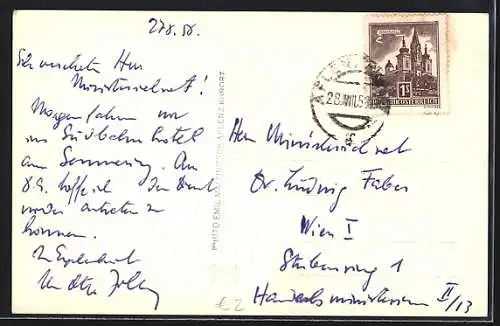 27.8.58.
Sehr verehrter Herr
Ministerialrat!
Morgen fahren wir
ins Südbahnhotel
am Semmering. Am
8.9. hoffe ich den Dienst
wieder antreten zu
können.
In Ergebenheit
Ihr
PHOTO EMIL KURORT
APLENZ
28.VIII.58
1S
REPUBLIK ÖSTERREICH
Herrn Ministerialrat
Dr. Ludwig Faber
Wien I
Stubenring 1
Handelsministerium II/13
€ 2